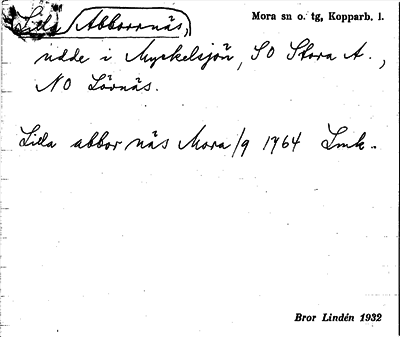 Lilla Abborrnäs, Mora sn o. tg, Kopparb. l.
udde i Myckelsjön, SO Stora A.,
NO Lörnäs.
Lilla abbor näs Mora/9 1764 Lmk.
Bror Lindén 1932